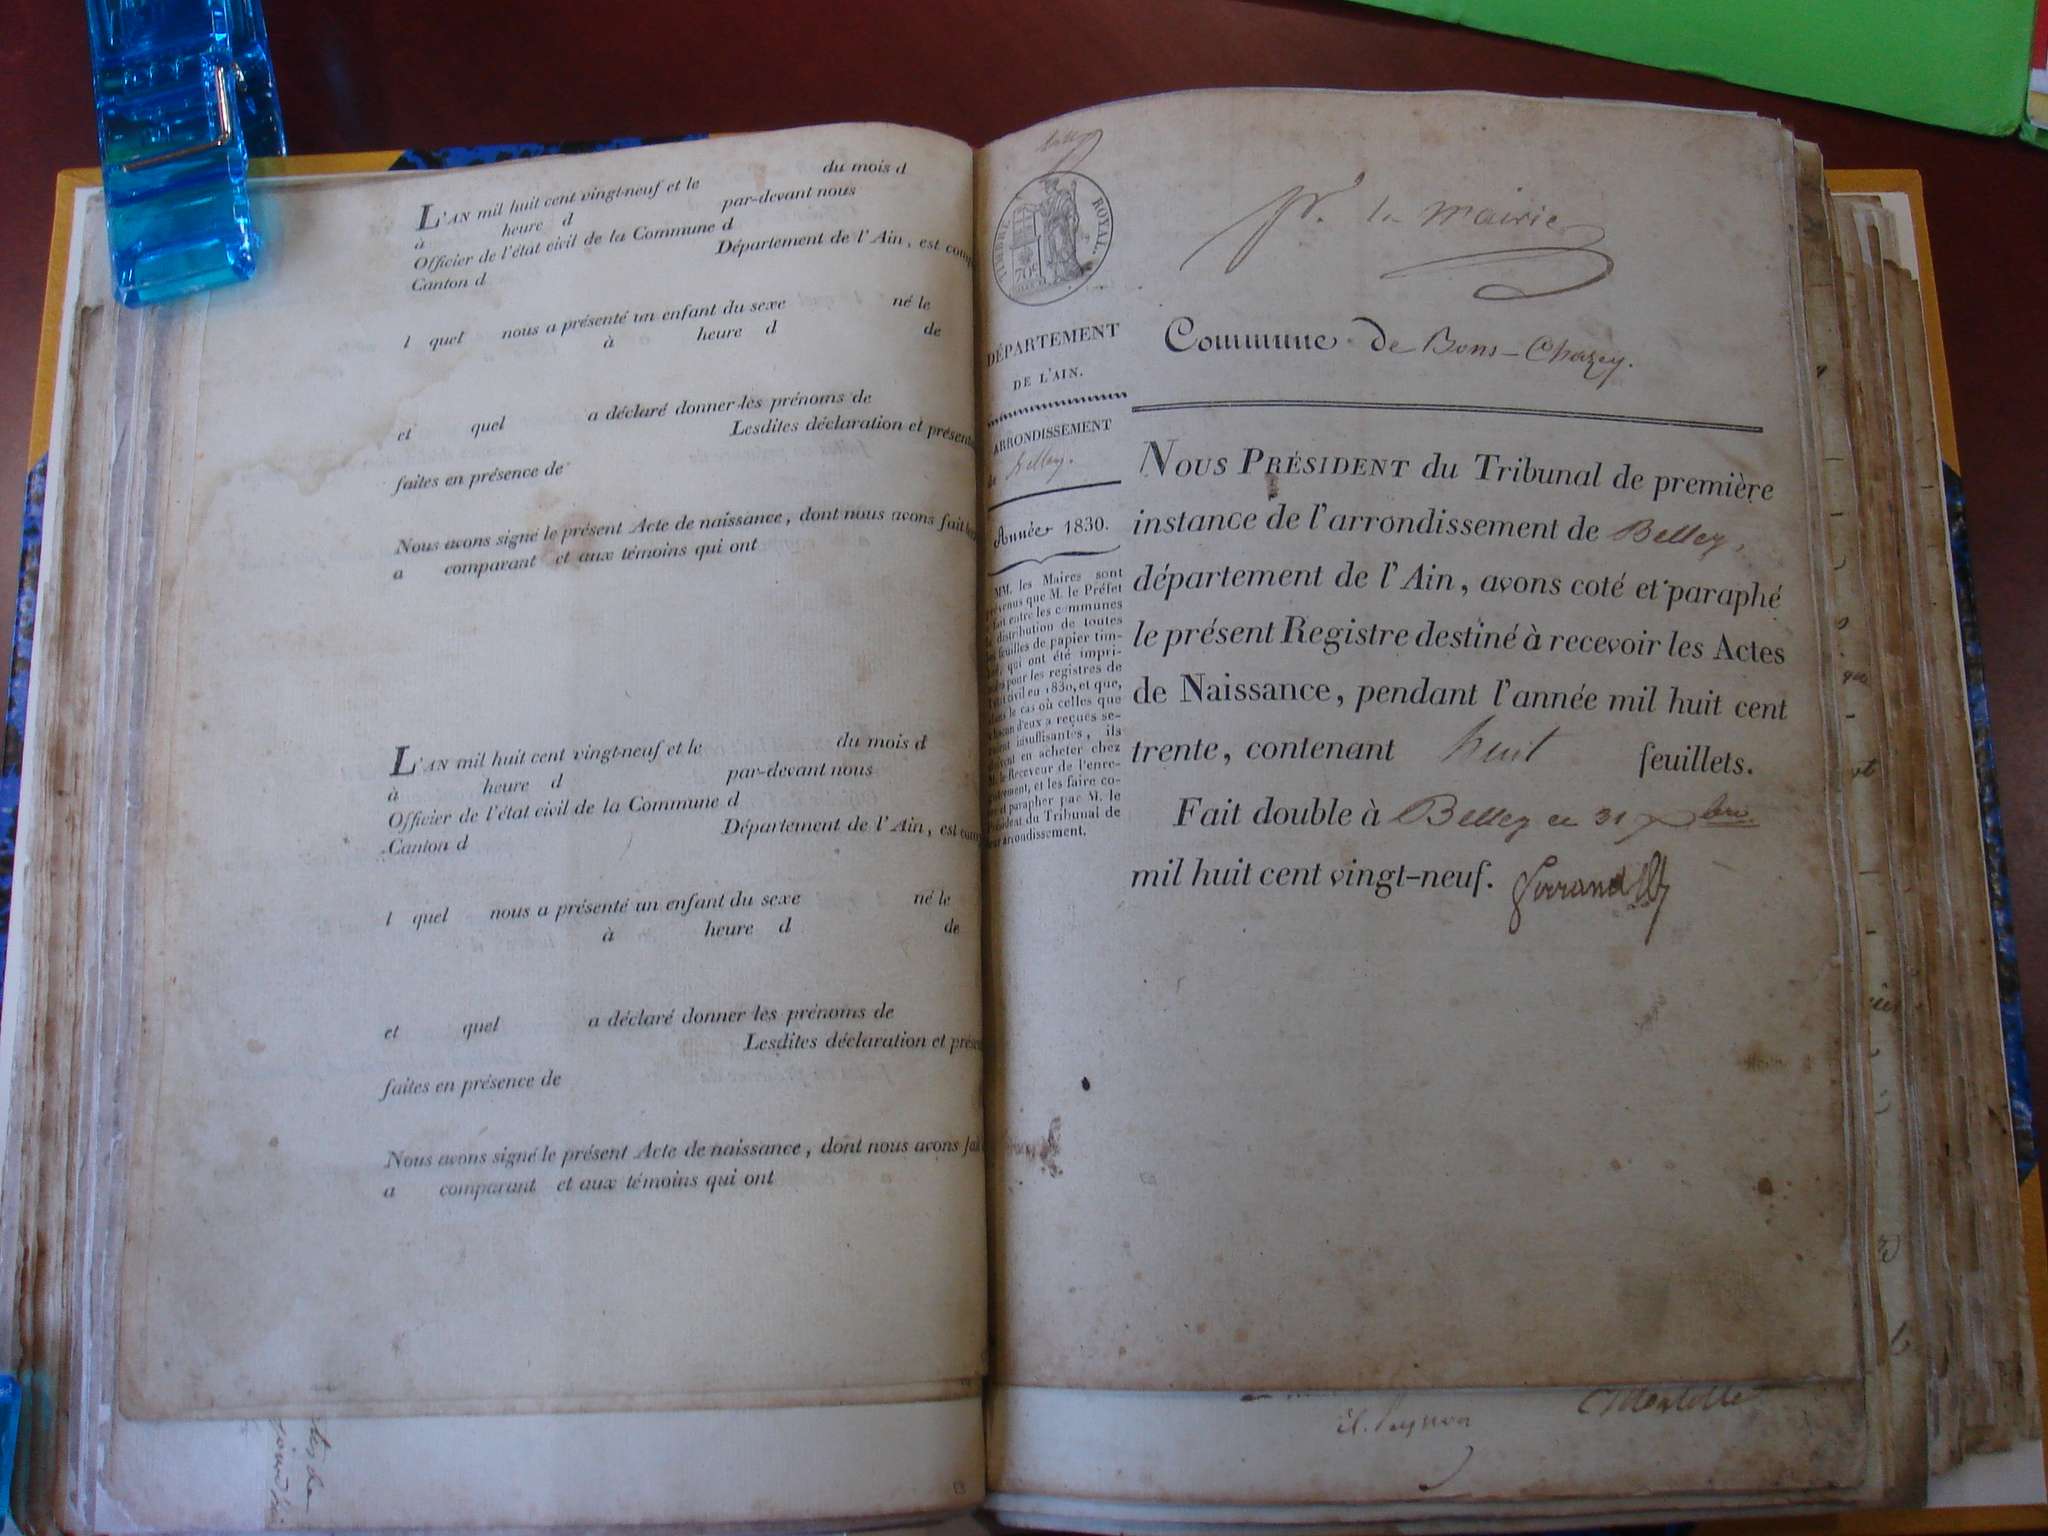 L'AN mil huit cent vingt-neuf et le du mois d
à heure d par-devant nous
Officier de l'état civil de la Commune d
Canton d Département de l'Ain, est comp
l quel nous a présenté un enfant du sexe né le
à heure d de
et quel a déclaré donner les prénoms de
Lesdites déclaration et présent
faites en présence de
Nous avons signé le présent Acte de naissance, dont nous avons fait
a comparant et aux témoins qui ont
L'AN mil huit cent vingt-neuf et le du mois d
à heure d par-devant nous
Officier de l'état civil de la Commune d
Canton d Département de l'Ain, est com
l quel nous a présenté un enfant du sexe né le
à heure d de
et quel a déclaré donner les prénoms de
Lesdites déclaration et prése
faites en présence de
Nous avons signé le présent Acte de naissance, dont nous avons fai
a comparant et aux témoins qui ont
TIMBRE ROYAL
70c
DÉPARTEMENT
DE L'AIN.
ARRONDISSEMENT
de Belley.
Année 1830.
MM. les Maires sont
venus que M. le Préfet
fait entre les communes
distribution de toutes
feuilles de papier tim-
qui ont été impri-
pour les registres de
civil en 1830, et que,
dans le cas où celles que
chacun d'eux a reçues se-
insuffisantes, ils
en acheter chez
M. le Receveur de l'enre-
gistrement, et les faire co-
et parapher par M. le
Président du Tribunal de
arrondissement.
pr. la mairie
Commune de Bons-Chazey.
NOUS PRÉSIDENT du Tribunal de première
instance de l'arrondissement de Belley,
département de l'Ain, avons coté et paraphé
le présent Registre destiné à recevoir les Actes
de Naissance, pendant l'année mil huit cent
trente, contenant huit feuillets.
Fait double à Belley ce 31 Xbre
mil huit cent vingt-neuf.